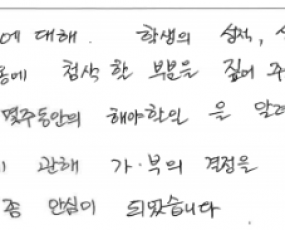 에 대해. 학생의 성적, 
동에 첨삭 한 부분을 짚어 주
몇주동안의 해야할일 을 알려
관해 가·부의 결정을
종 안심이 되었습니다